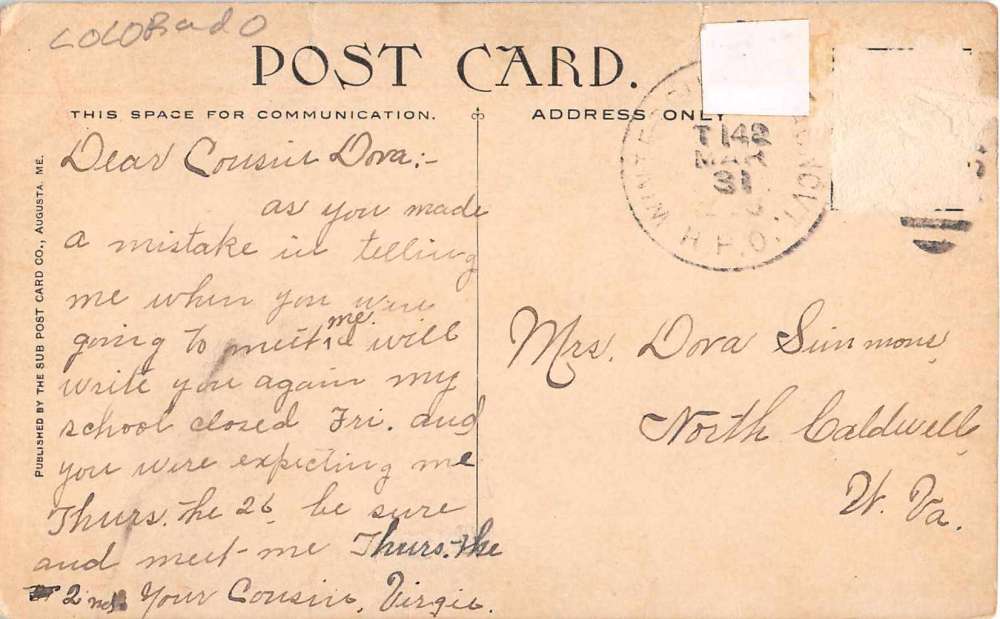 COLORado
POST CARD.
THIS SPACE FOR COMMUNICATION.
ADDRESS ONLY
Dear Cousin Dora:-
as you made
a mistake in telling
me when you were
going to meet me. I will
write you again my
school closed Fri. and
you were expecting me
Thurs. the 26, be sure
and meet me Thurs. the
2nd. Your Cousin, Virgie.
T 142
MAR
31
R.P.O.
Mrs. Dora Simmons,
North Caldwell,
W. Va.
PUBLISHED BY THE SUB POST CARD CO., AUGUSTA, ME.